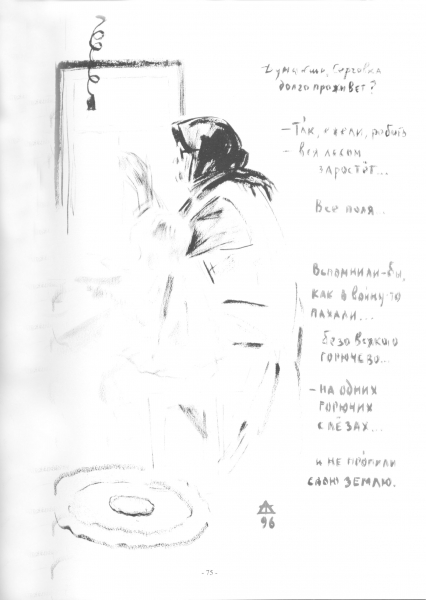 Думаешь, Серговка
долго проживет?
– Так, ежели, робята
– вся лесом
зарастёт...
Все поля...
Вспомнили-бы,
как в войну-то
пахали...
безо всякого
горючево...
– на одних
горючих
слёзах...
и не пропили
свою землю.
96
- 75 -